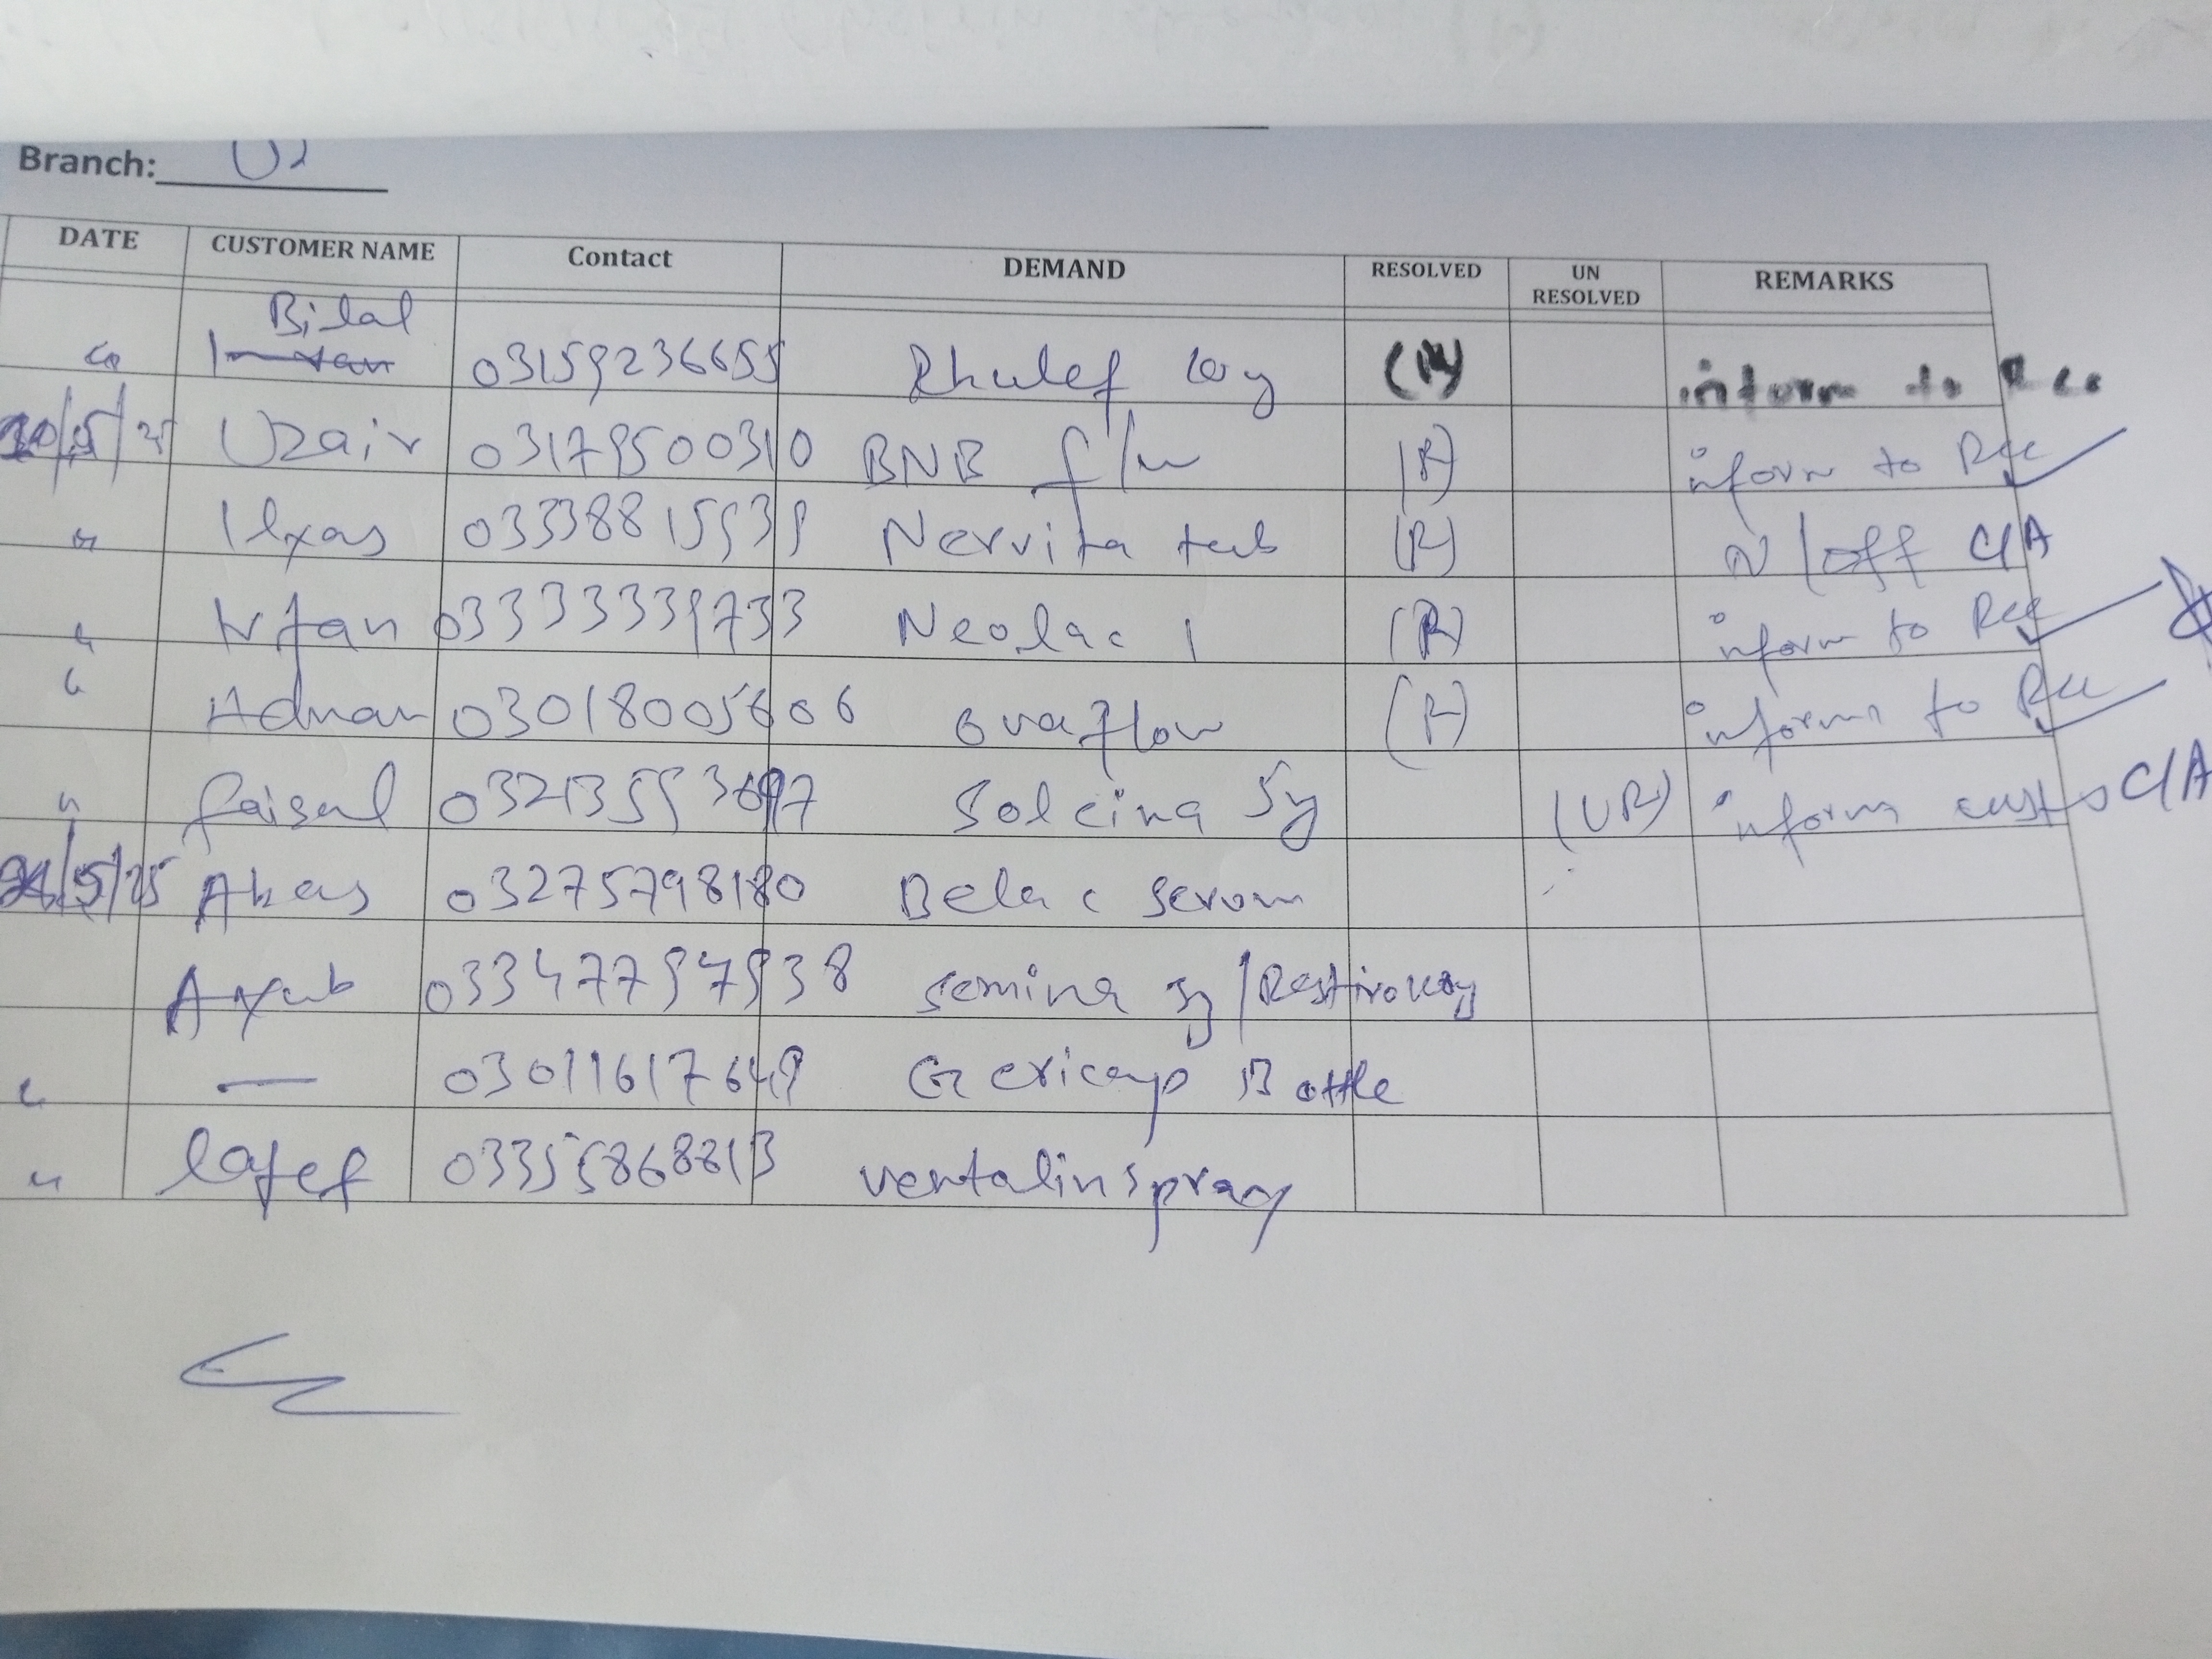 Branch:
DATE CUSTOMER NAME Contact DEMAND RESOLVED UN RESOLVED REMARKS
Bilal
03159236655 (R) inform to Rec
20/5/25 Uzair 03179500310 BNB f/w (R) inform to Rec
" Ilyas 03338815939 Nervita tab (R) N/off C/A
" Irfan 03333339733 Neolac 1 (R) inform to Rec
" Adnan 03018005606 ovaflow (R) inform to Rec
" faisal Solcina Sy (UR) inform cust C/A
/5/25 03275798180 Bela c serom
Ayub 03347797938 semina sy /
" — 03011617649 Gericap Bottle
" 03355868813 ventalin spray